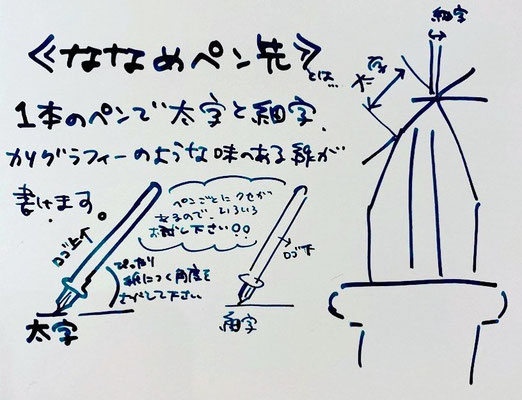 ≪ななめペン先≫とは…
1本のペンで太字と細字、
カリグラフィーのような味のある線が
書けます。
ペンごとにクセが
あるので、いろいろ
お試し下さい!!
ロゴ上
ぴったり
紙につく角度を
さがして下さい
太字
ロゴ下
細字
細字
太字